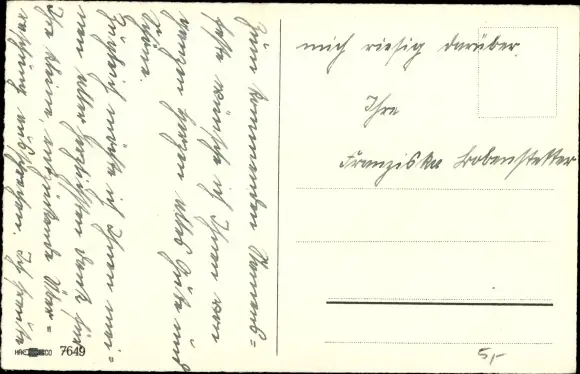 Zum kommenden Namens=
feste wünsche ich Ihnen von
ganzem Herzen alles Gute und
Schöne.
Zugleich möchte ich Ihnen mei=
nen aller herzlichsten Dank für
Ihre kleine, entzückende Über=
raschung aussprechen. Ich freute
mich riesig darüber.
Ihre
Franziska Lobenstetter
HACO 7649
5,-